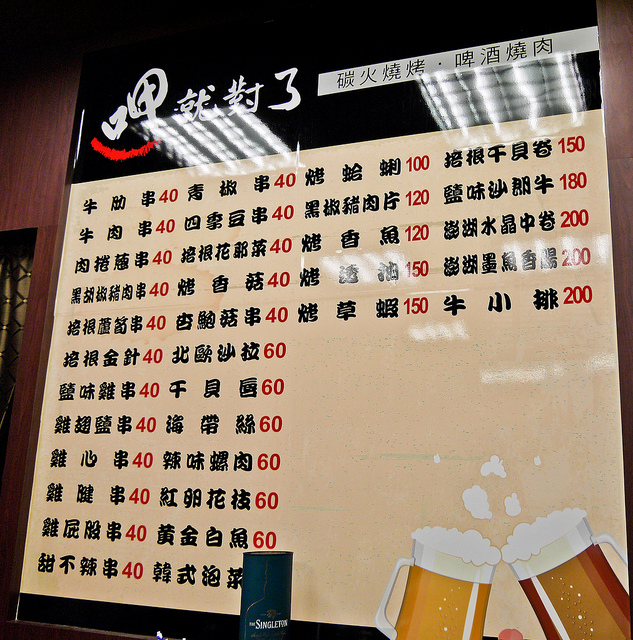 呷就對了
碳火燒烤・啤酒燒肉
牛肋串40
牛肉串40
肉捲蔥串40
黑胡椒豬肉串40
培根蘆筍串40
培根金針40
鹽味雞串40
雞翅鹽串40
雞心串40
雞腱串40
雞屁股串40
甜不辣串40
青椒串40
四季豆串40
培根花耶菜40
烤香菇40
杏鮑菇串40
北歐沙拉60
干貝唇60
海帶絲60
辣味螺肉60
紅卵花枝60
黃金白魚60
韓式泡菜
烤蛤蜊100
黑椒豬肉片120
烤香魚120
烤透油150
烤草蝦150
培根干貝卷150
鹽味沙朗牛180
澎湖水晶中卷200
澎湖墨魚香腸200
牛小排200
THE SINGLETON